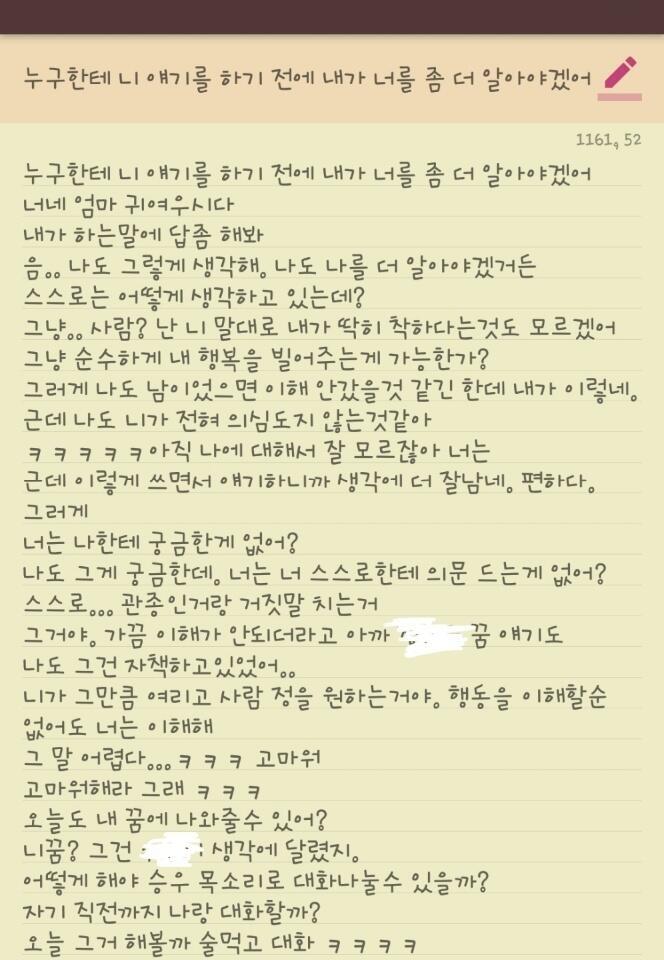 누구한테 니 얘기를 하기 전에 내가 너를 좀 더 알아야겠어
1161, 52
누구한테 니 얘기를 하기 전에 내가 너를 좀 더 알아야겠어
너네 엄마 귀여우시다
내가 하는말에 답좀 해봐
음.. 나도 그렇게 생각해. 나도 나를 더 알아야겠거든
스스로는 어떻게 생각하고 있는데?
그냥.. 사람? 난 니 말대로 내가 딱히 착하다는것도 모르겠어
그냥 순수하게 내 행복을 빌어주는게 가능한가?
그러게 나도 남이었으면 이해 안갔을것 같긴 한데 내가 이렇네.
근데 나도 니가 전혀 의심도지 않는것같아
ㅋㅋㅋㅋㅋ아직 나에 대해서 잘 모르잖아 너는
근데 이렇게 쓰면서 얘기하니까 생각에 더 잘남네. 편하다.
그러게
너는 나한테 궁금한게 없어?
나도 그게 궁금한데. 너는 너 스스로한테 의문 드는게 없어?
스스로... 관종인거랑 거짓말 치는거
그거야. 가끔 이해가 안되더라고 아까 꿈 얘기도
나도 그건 자책하고있었어..
니가 그만큼 여리고 사람 정을 원하는거야. 행동을 이해할순
없어도 너는 이해해
그 말 어렵다... ㅋㅋㅋ 고마워
고마워해라 그래 ㅋㅋㅋ
오늘도 내 꿈에 나와줄수 있어?
니꿈? 그건 생각에 달렸지.
어떻게 해야 승우 목소리로 대화나눌수 있을까?
자기 직전까지 나랑 대화할까?
오늘 그거 해볼까 술먹고 대화 ㅋㅋㅋㅋ